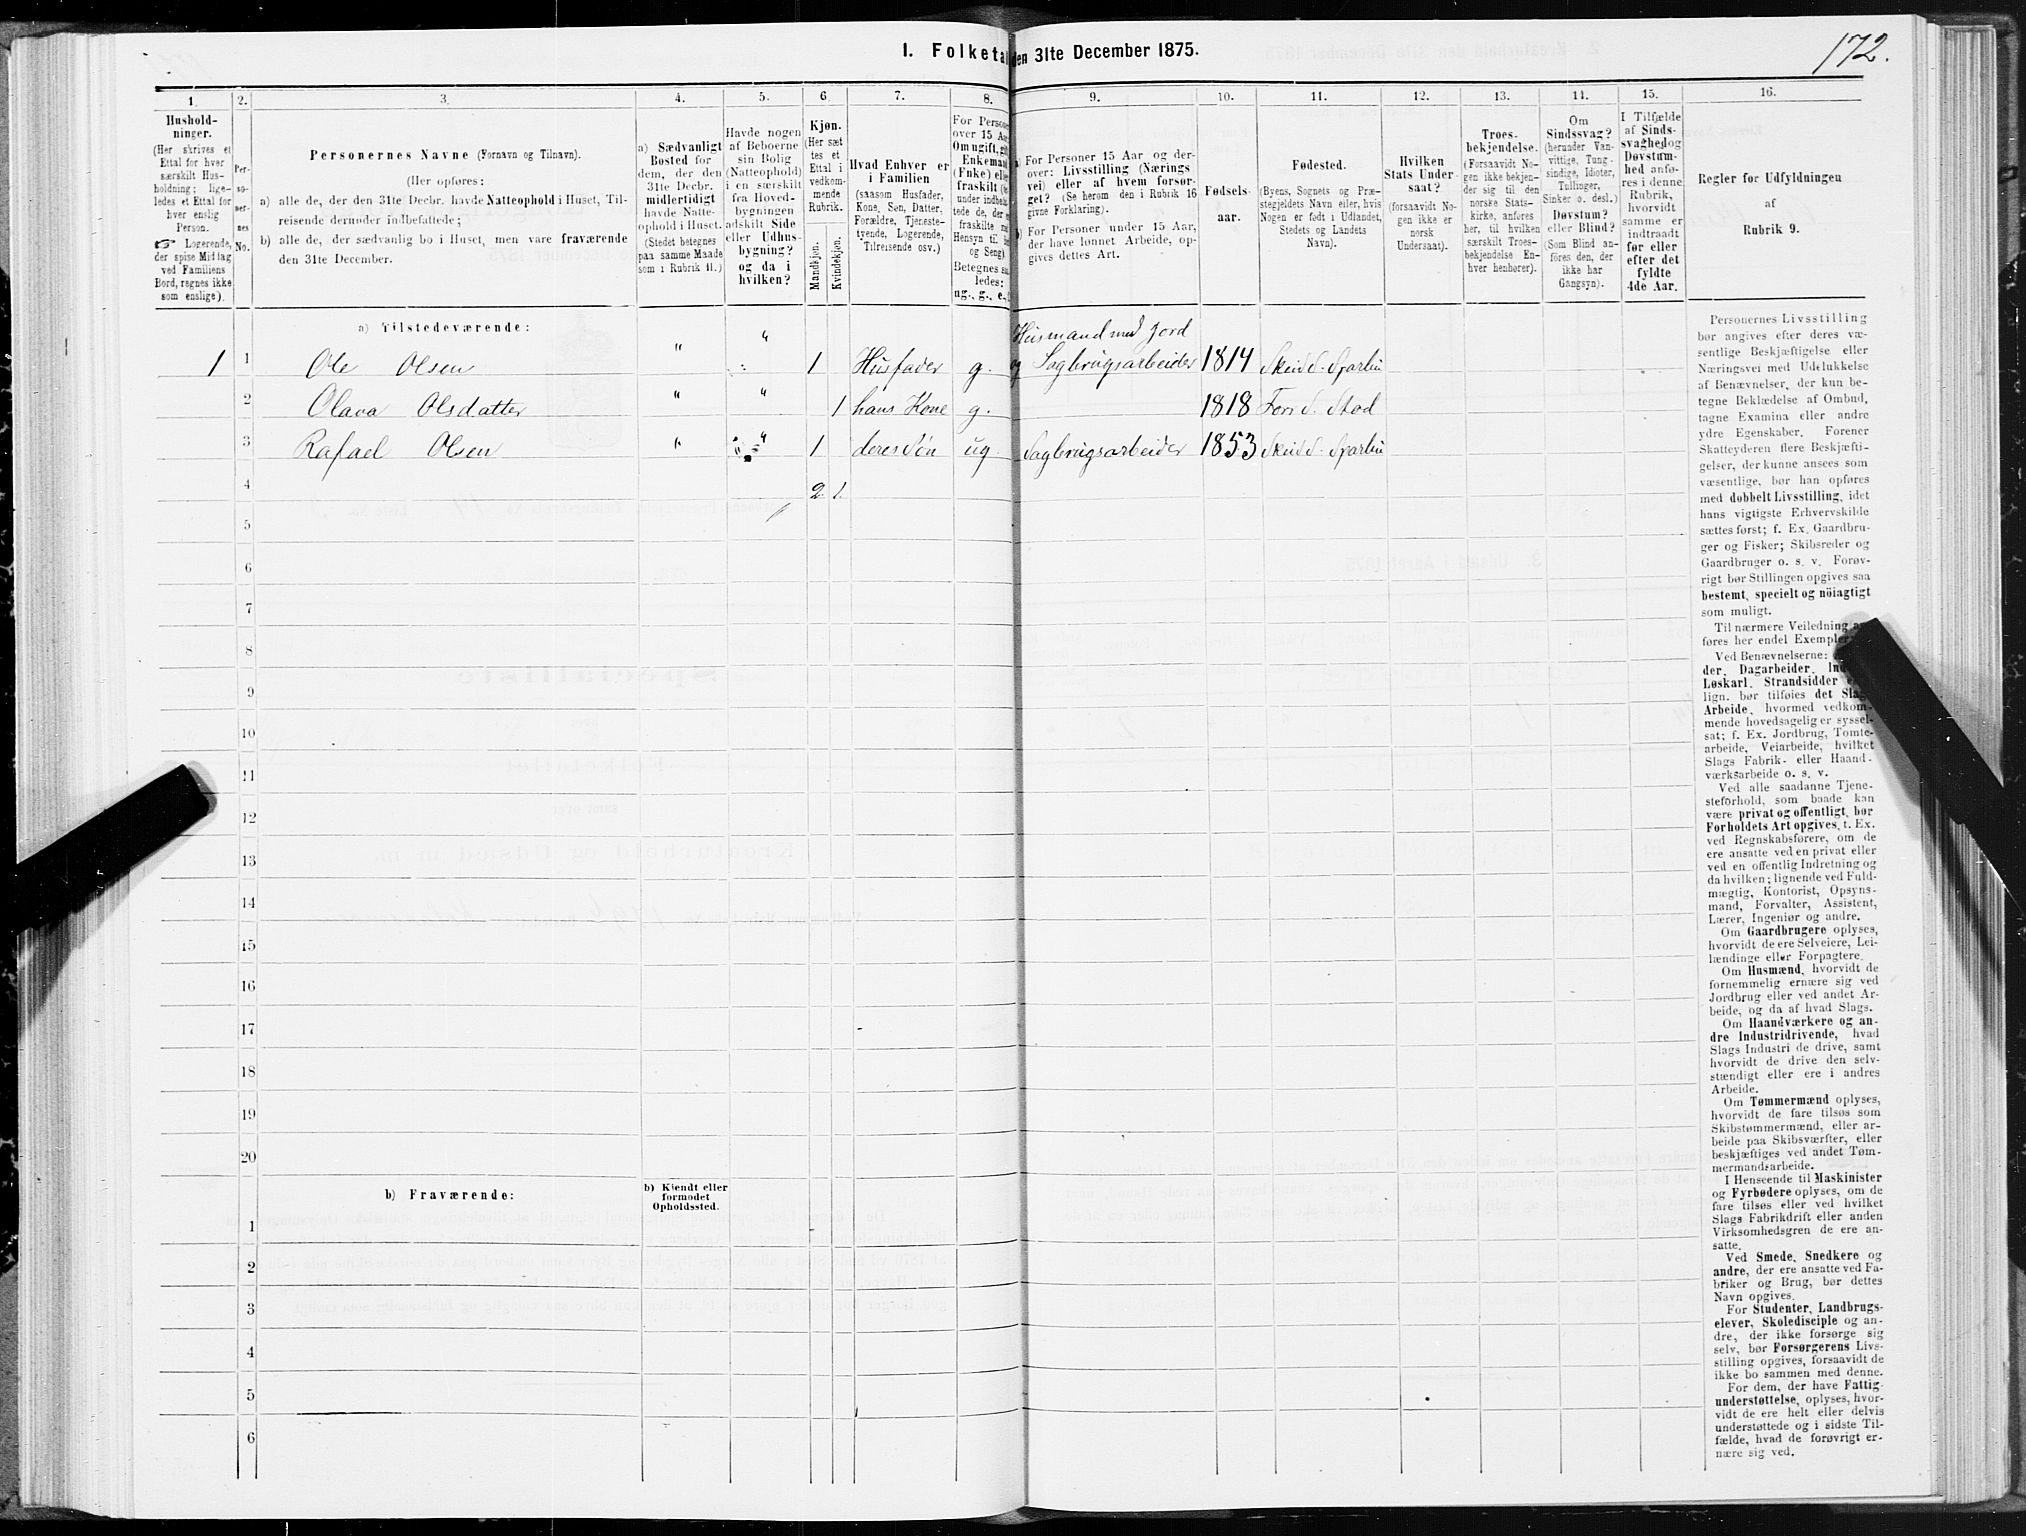 172.
I. Folketal den 31te December 1875.
1. 2. 3. 4. 5. 6. 7. 8. 9. 10. 11. 12. 13. 14. 15. 16.
Hushold-
ninger.
(Her skrives et
Ettal for hver
særskilt Hus-
holdning; lige-
ledes et Ettal for
hver enslig
Person.
☞ Logerende,
der spise Middag
ved Familiens
Bord, regnes ikke
som enslige).
Per-
so-
ner-
nes
No.
Personernes Navne (Fornavn og Tilnavn).
(Her opføres:
a) alle de, der den 31te Decbr. havde Natteophold i Huset, Til-
reisende derunder indbefattede;
b) alle de, der sædvanlig bo i Huset, men vare fraværende
den 31te December.
a) Sædvanligt
Bosted for
dem, der den
31te Decbr.
midlertidigt
havde Natte-
ophold i Huset.
(Stedet betegnes
paa samme Maade
som i Rubrik 11.)
Havde nogen
af Beboerne
sin Bolig
(Natteophold)
i en særskilt
fra Hoved-
bygningen
adskilt Side
eller Udhus-
bygning?
og da i
hvilken?
Kjøn.
(Her sæt
tes et
Ettal i
vedkom-
mende
Rubrik.
Mandkjøn.
Kvindekjøn.
Hvad Enhver er
i Familien
(saasom Husfader,
Kone, Søn, Datter,
Forældre, Tjeneste-
tyende, Logerende,
Tilreisende osv.)
For Persone
over 15 Aa
Om ugift, gif
Enkemand
(Enke) elle
fraskilt
under indbe
tede de, der
fraskilte m
Hensyn til
og Seng).
Betegnes sa
ledes:
ug., g., e.,
a) For Personer 15 Aar og der-
over: Livsstilling (Nærings
vei) eller af hvem forsør-
get? (Se herom den i Rubrik 16
givne Forklaring).
b) For Personer under 15 Aar,
der have lønnet Arbeide, op-
gives dettes Art.
Fødsels-
aar.
Fødested.
(Byens, Sognets og Præ-
stegjeldets Navn eller, hvis
Nogen er født i Udlandet,
Stedets og Landets
Navn).
Hvilken
Stats Under-
saat?
(forsaavidt No-
gen ikke er
norsk
Undersaat).
Troes-
bekjendelse.
(Forsaavidt No-
gen ikke bekjen-
der sig til den
norske Stats-
kirke, anføres
her, til hvilken
særskilt Troes-
bekjendelse En-
hver henhører).
Om
Sindssvag?
(herunder Van-
vittige, Tung-
sindige, Idioter,
Tullinger,
Sinker o. desl.)
Døvstum?
eller Blind?
(Som Blind an-
føres den, der
ikke har
Gangsyn).
I Tilfælde
af Sinds-
svaghed og
Døvstum-
hed anfø-
res i denne
Rubrik,
hvorvidt
samme er
indtraadt
før eller
efter det
fyldte
4de Aar.
Regler for Udfyldningen
af
Rubrik 9.
a) Tilstedeværende:
Husmand med Jord
1 1 Ole Olsen " " 1 Husfader g. og Sagbrugsarbeider 1814 Skeid S. Sparbu
2 Olava Olsdatter " " 1 hans Kone g. 1818 For S. Stod
3 Rafael Olsen " " 1 deres Søn ug. Sagbrugsarbeider 1853 Skeid S. Sparbu
4 2 1
5
6
7
8
9
10
11
12
13
14
15
16
17
18
19
20
b) Fraværende:
b) Kjendt eller
formodet
Opholdssted.
1
2
3
4
5
6
Personernes Livsstilling
bør angives efter deres væ-
sentlige Beskjæftigelse eller
Næringsvei med Udelukkelse
af Benævnelser, der kun be-
tegne Beklædelse af Ombud,
tagne Examina eller andre
ydre Egenskaber. Forener
Skatteyderen flere Beskjæfti-
gelser, der kunne ansees som
væsentlige, bør han opføres
med dobbelt Livsstilling, idet
hans vigtigste Erhvervskilde
sættes først; f. Ex. Gaardbru-
ger og Fisker; Skibsreder og
Gaardbruger o. s. v. Forøv-
rigt bør Stillingen opgives saa
bestemt, specielt og nöiagtigt
som muligt.
Til nærmere Veiledning
føres her endel Exempler
Ved Benævnelserne:
der, Dagarbeider,
Løskarl, Strandsidder
lign. bør tilføies det Slags
Arbeide, hvormed vedkom-
mende hovedsagelig er syssel-
sat; f. Ex. Jordbrug, Tomte-
arbeide, Veiarbeide, hvilket
Slags Fabrik- eller Haand-
værksarbeide o. s. v.
Ved alle saadanne Tjene-
steforhold, som baade kan
være privat og offentligt, bør
Forholdets Art opgives, t. Ex.
ved Regnskabsførere, om de
ere ansatte ved en privat eller
ved en offentlig Indretning og
da hvilken; lignende ved Fuld-
mægtig, Kontorist, Opsyns-
mand, Forvalter, Assistent,
Lærer, Ingeniør og andre.
Om Gaardbrugere oplyses,
hvorvidt de ere Selveiere, Lei-
lændinge eller Forpagtere.
Om Husmænd, hvorvidt de
fornemmelig ernære sig ved
Jordbrug eller ved andet Ar-
beide, og da af hvad Slags.
Om Haandværkere og an-
dre Industridrivende, hvad
Slags Industri de drive, samt
hvorvidt de drive den selv-
stændigt eller ere i andres
Arbeide.
Om Tømmermænd oplyses,
hvorvidt de fare tilsøs som
Skibstømmermænd, eller ar-
beide paa Skibsværfter, eller
beskjæftiges ved andet Tøm-
mermandsarbeide.
I Henseende til Maskinister
og Fyrbødere oplyses, om de
fare tilsøs eller ved hvilket
Slags Fabrikdrift eller anden
Virksomhedsgren de ere an-
satte.
Ved Smede, Snedkere og
andre, der ere ansatte ved Fa-
briker og Brug, bør dettes
Navn opgives.
For Studenter, Landbrugs-
elever, Skoledisciple og an-
dre, der ikke forsørge sig
selv, bør Forsørgerens Livs-
stilling opgives, forsaavidt de
ikke bo sammen med denne.
For dem, der have Fattig-
understøttelse, oplyses, hvor-
vidt de ere helt eller delvis
understøttede og i sidste Til-
fælde, hvad de forøvrigt er-
nære sig ved.